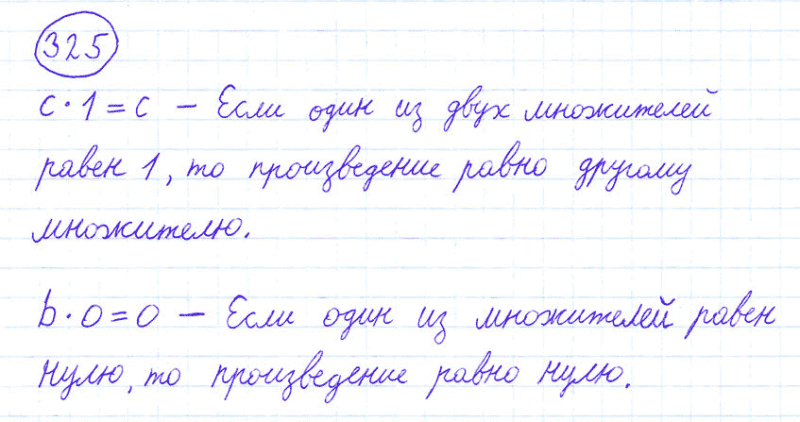 325
c · 1 = c – Если один из двух множителей
равен 1, то произведение равно другому
множителю.
b · 0 = 0 – Если один из множителей равен
нулю, то произведение равно нулю.